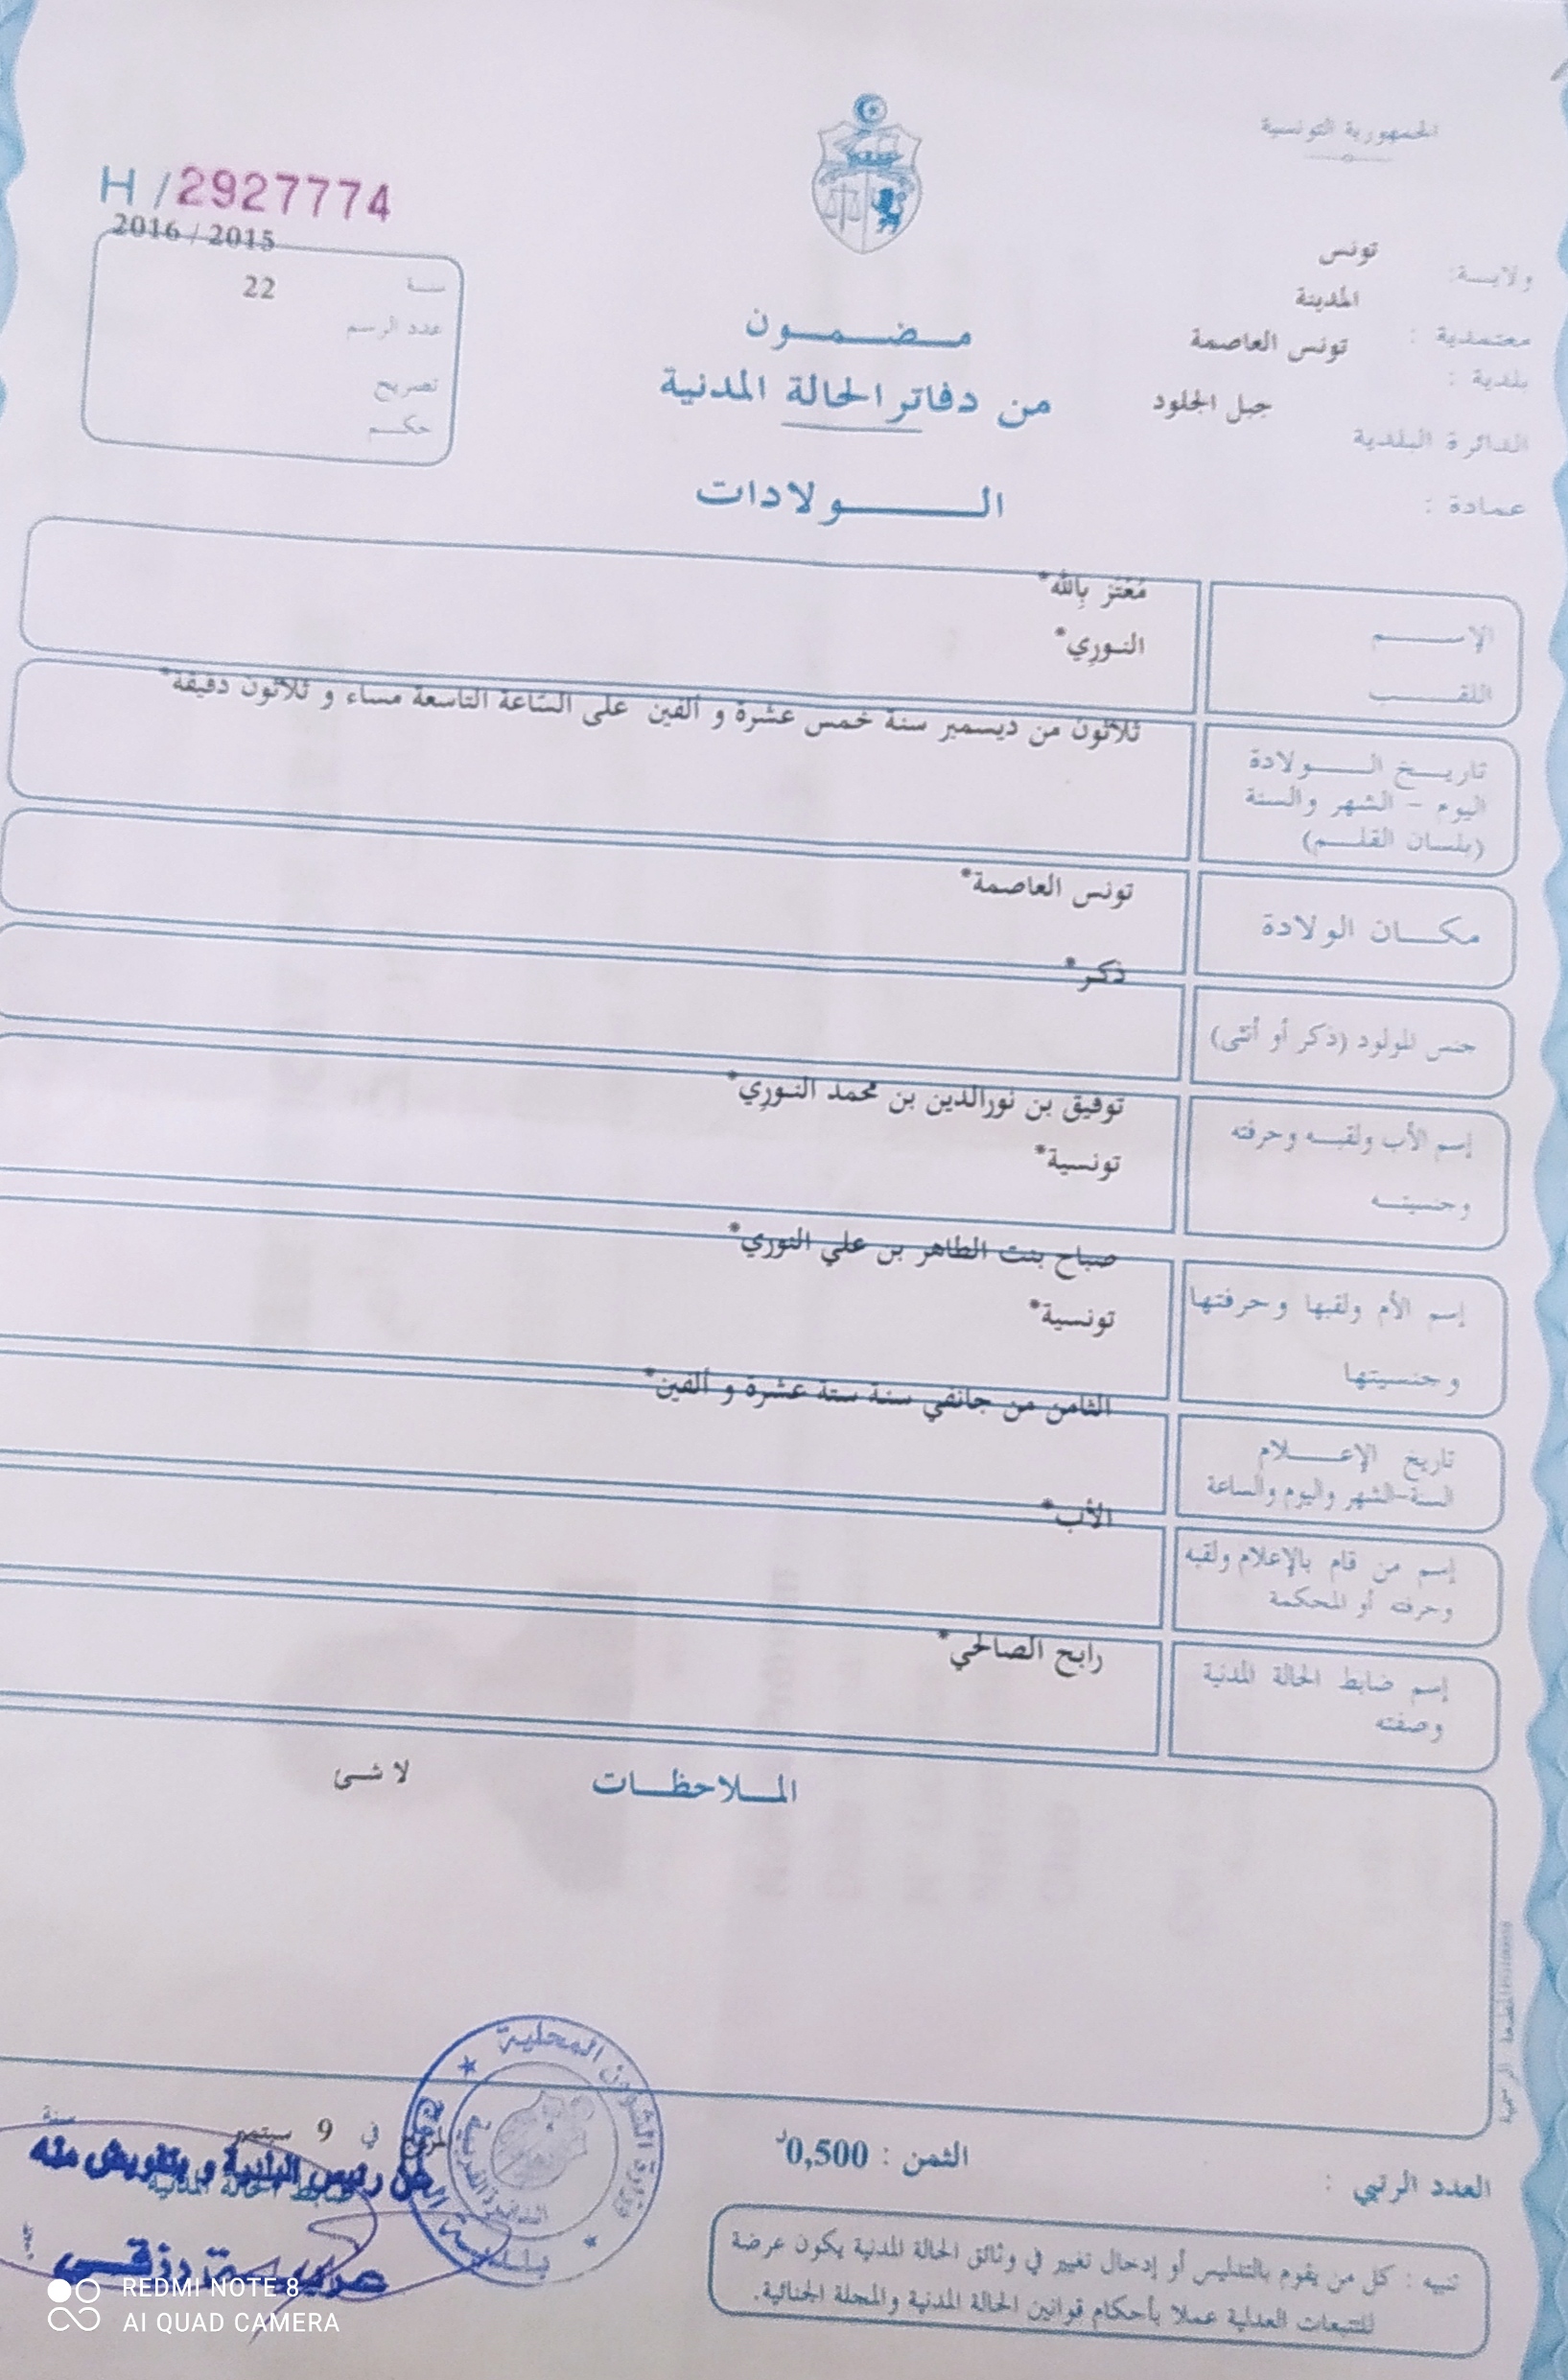 الجمهورية التونسية
ولايــة: تونس
معتمدية : المدينة
بلدية : تونس العاصمة
الدائرة البلدية جبل الجلود
عمادة :
H / 2927774
2016 / 2015
سنة
22
عدد الرسم
تصريح
حكم
مضمون
من دفاتر الحالة المدنية
الولادات
الإسم
مُعْتَز بِالله*
اللقب
النـورِي*
تاريخ الولادة
اليوم - الشهر والسنة
(بلسان القلم)
ثلاثون من ديسمبر سنة خمس عشرة و ألفين على السّاعة التاسعة مساء و ثلاثون دقيقة*
مكان الولادة
تونس العاصمة*
جنس المولود (ذكر أو أنثى)
ذكر*
إسم الأب ولقبه وحرفته
وجنسيته
توفيق بن نورالدين بن محمد النـورِي*
تونسية*
إسم الأم ولقبها وحرفتها
وجنسيتها
صباح بنت الطاهر بن علي النوري*
تونسية*
تاريخ الإعلام
السنة-الشهر واليوم والساعة
الثامن من جانفي سنة ستة عشرة و ألفين*
إسم من قام بالإعلام ولقبه
وحرفته أو المحكمة
الأب*
إسم ضابط الحالة المدنية
وصفته
رابح الصالحي*
الملاحظات
لا شى
المطبعة الرسمية
وزارة الشؤون المحلية
في 9 سبتمبر
سنة
عن رئيس البلدية و بتفويض منه
ضابط الحالة المدنية
الثمن : 0,500د
العدد الرتبي :
تنبيه : كل من يقوم بالتدليس أو إدخال تغيير في وثائق الحالة المدنية يكون عرضة
للتتبعات العدلية عملا بأحكام قوانين الحالة المدنية والمجلة الجنائية.
REDMI NOTE 8
AI QUAD CAMERA